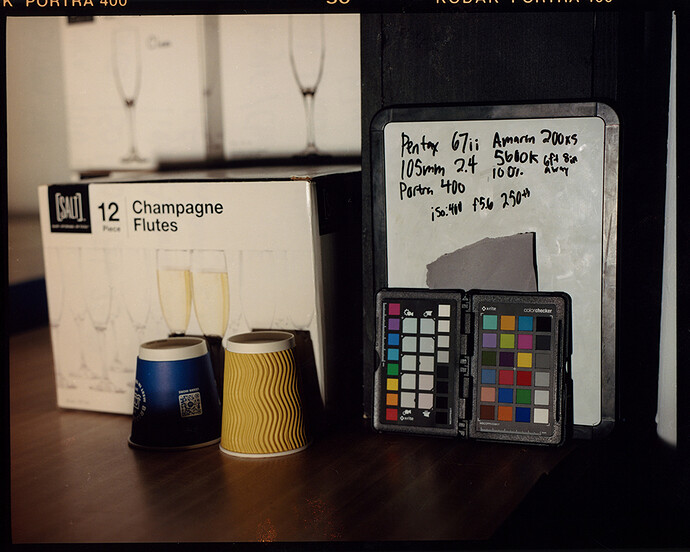 K PORTRA 400
KODAK PORTRA 400
[SALT]
12
Piece
Champagne
Flutes
Pentax 67ii
105mm 2.4
Portra 400
Amaran 200xs
5600K
100%
6ft 8in
away
iso:400 f5.6 250th
x-rite
x-rite
colorchecker